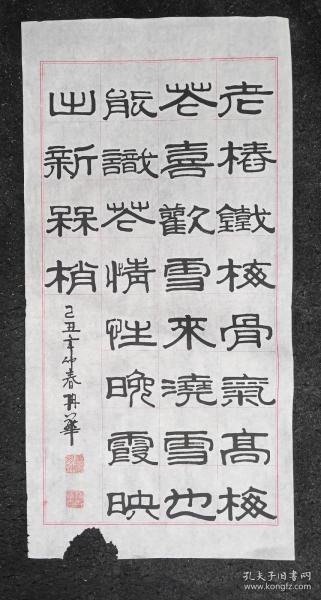 老樁鐵梅骨氣高梅
花喜歡雪來澆雪也
能識花情性晚霞映
出新槑梢
己丑年仲春
孔夫子旧书网
www.kongfz.com